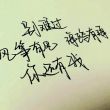 别难过
风筝有风 海豚有海
你还有我